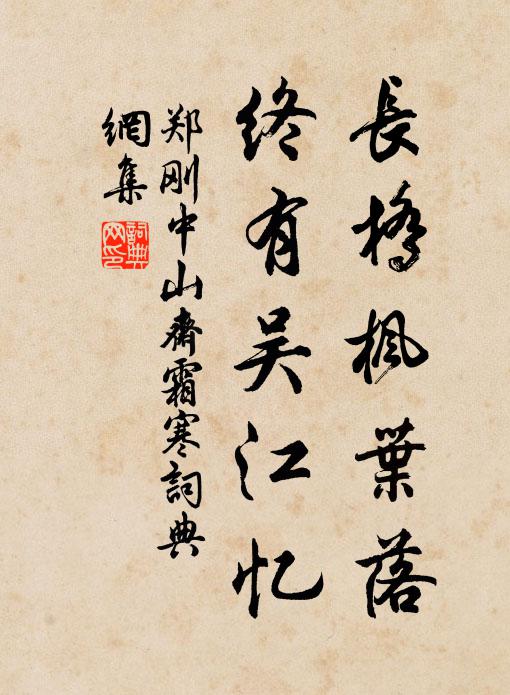 長橋枫葉落
终有吴江忆
郑刚中山齋霜寒詞典
網集
詞典
网印